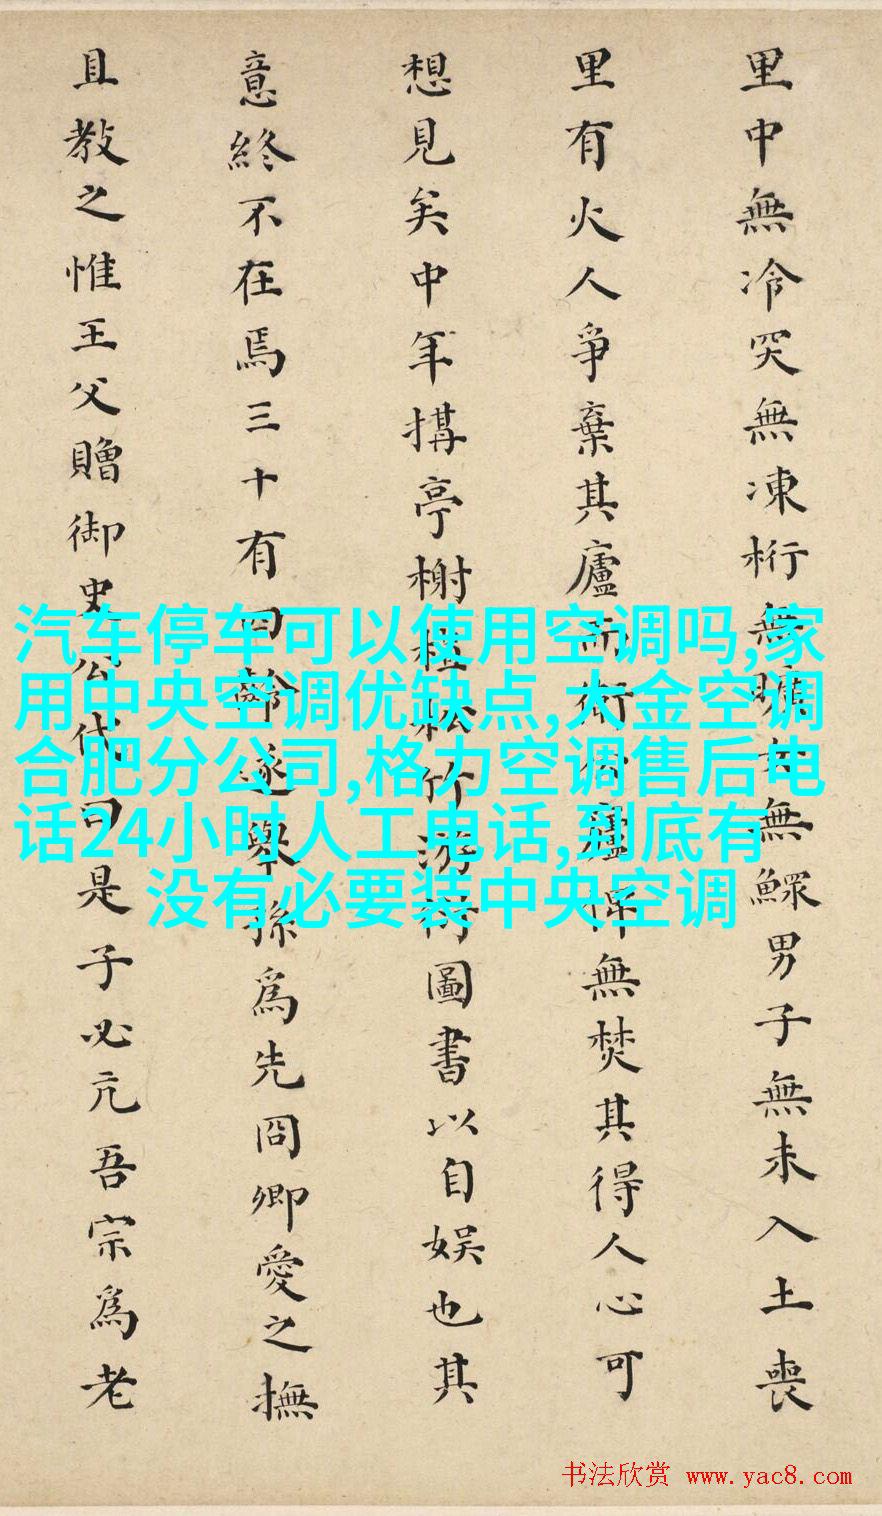 里中無冷突無凍桁無曠女無鰥男子無未入土喪
里有火人爭棄其廬而衛公廬俾無焚其得人心可
想見矣中年搆亭榭植松竹游衍圖書以自娛也其
意終不在焉三十有四齡遂舉孫為先冏卿愛之撫
且教之惟王父贈御史公代曰是子必亢吾宗為老
汽车停车可以使用空调吗,家
用中央空调优缺点,大金空调
合肥分公司,格力空调售后电
话24小时人工电话,到底有
没有必要装中央空调
书法欣赏 www.yac8.com